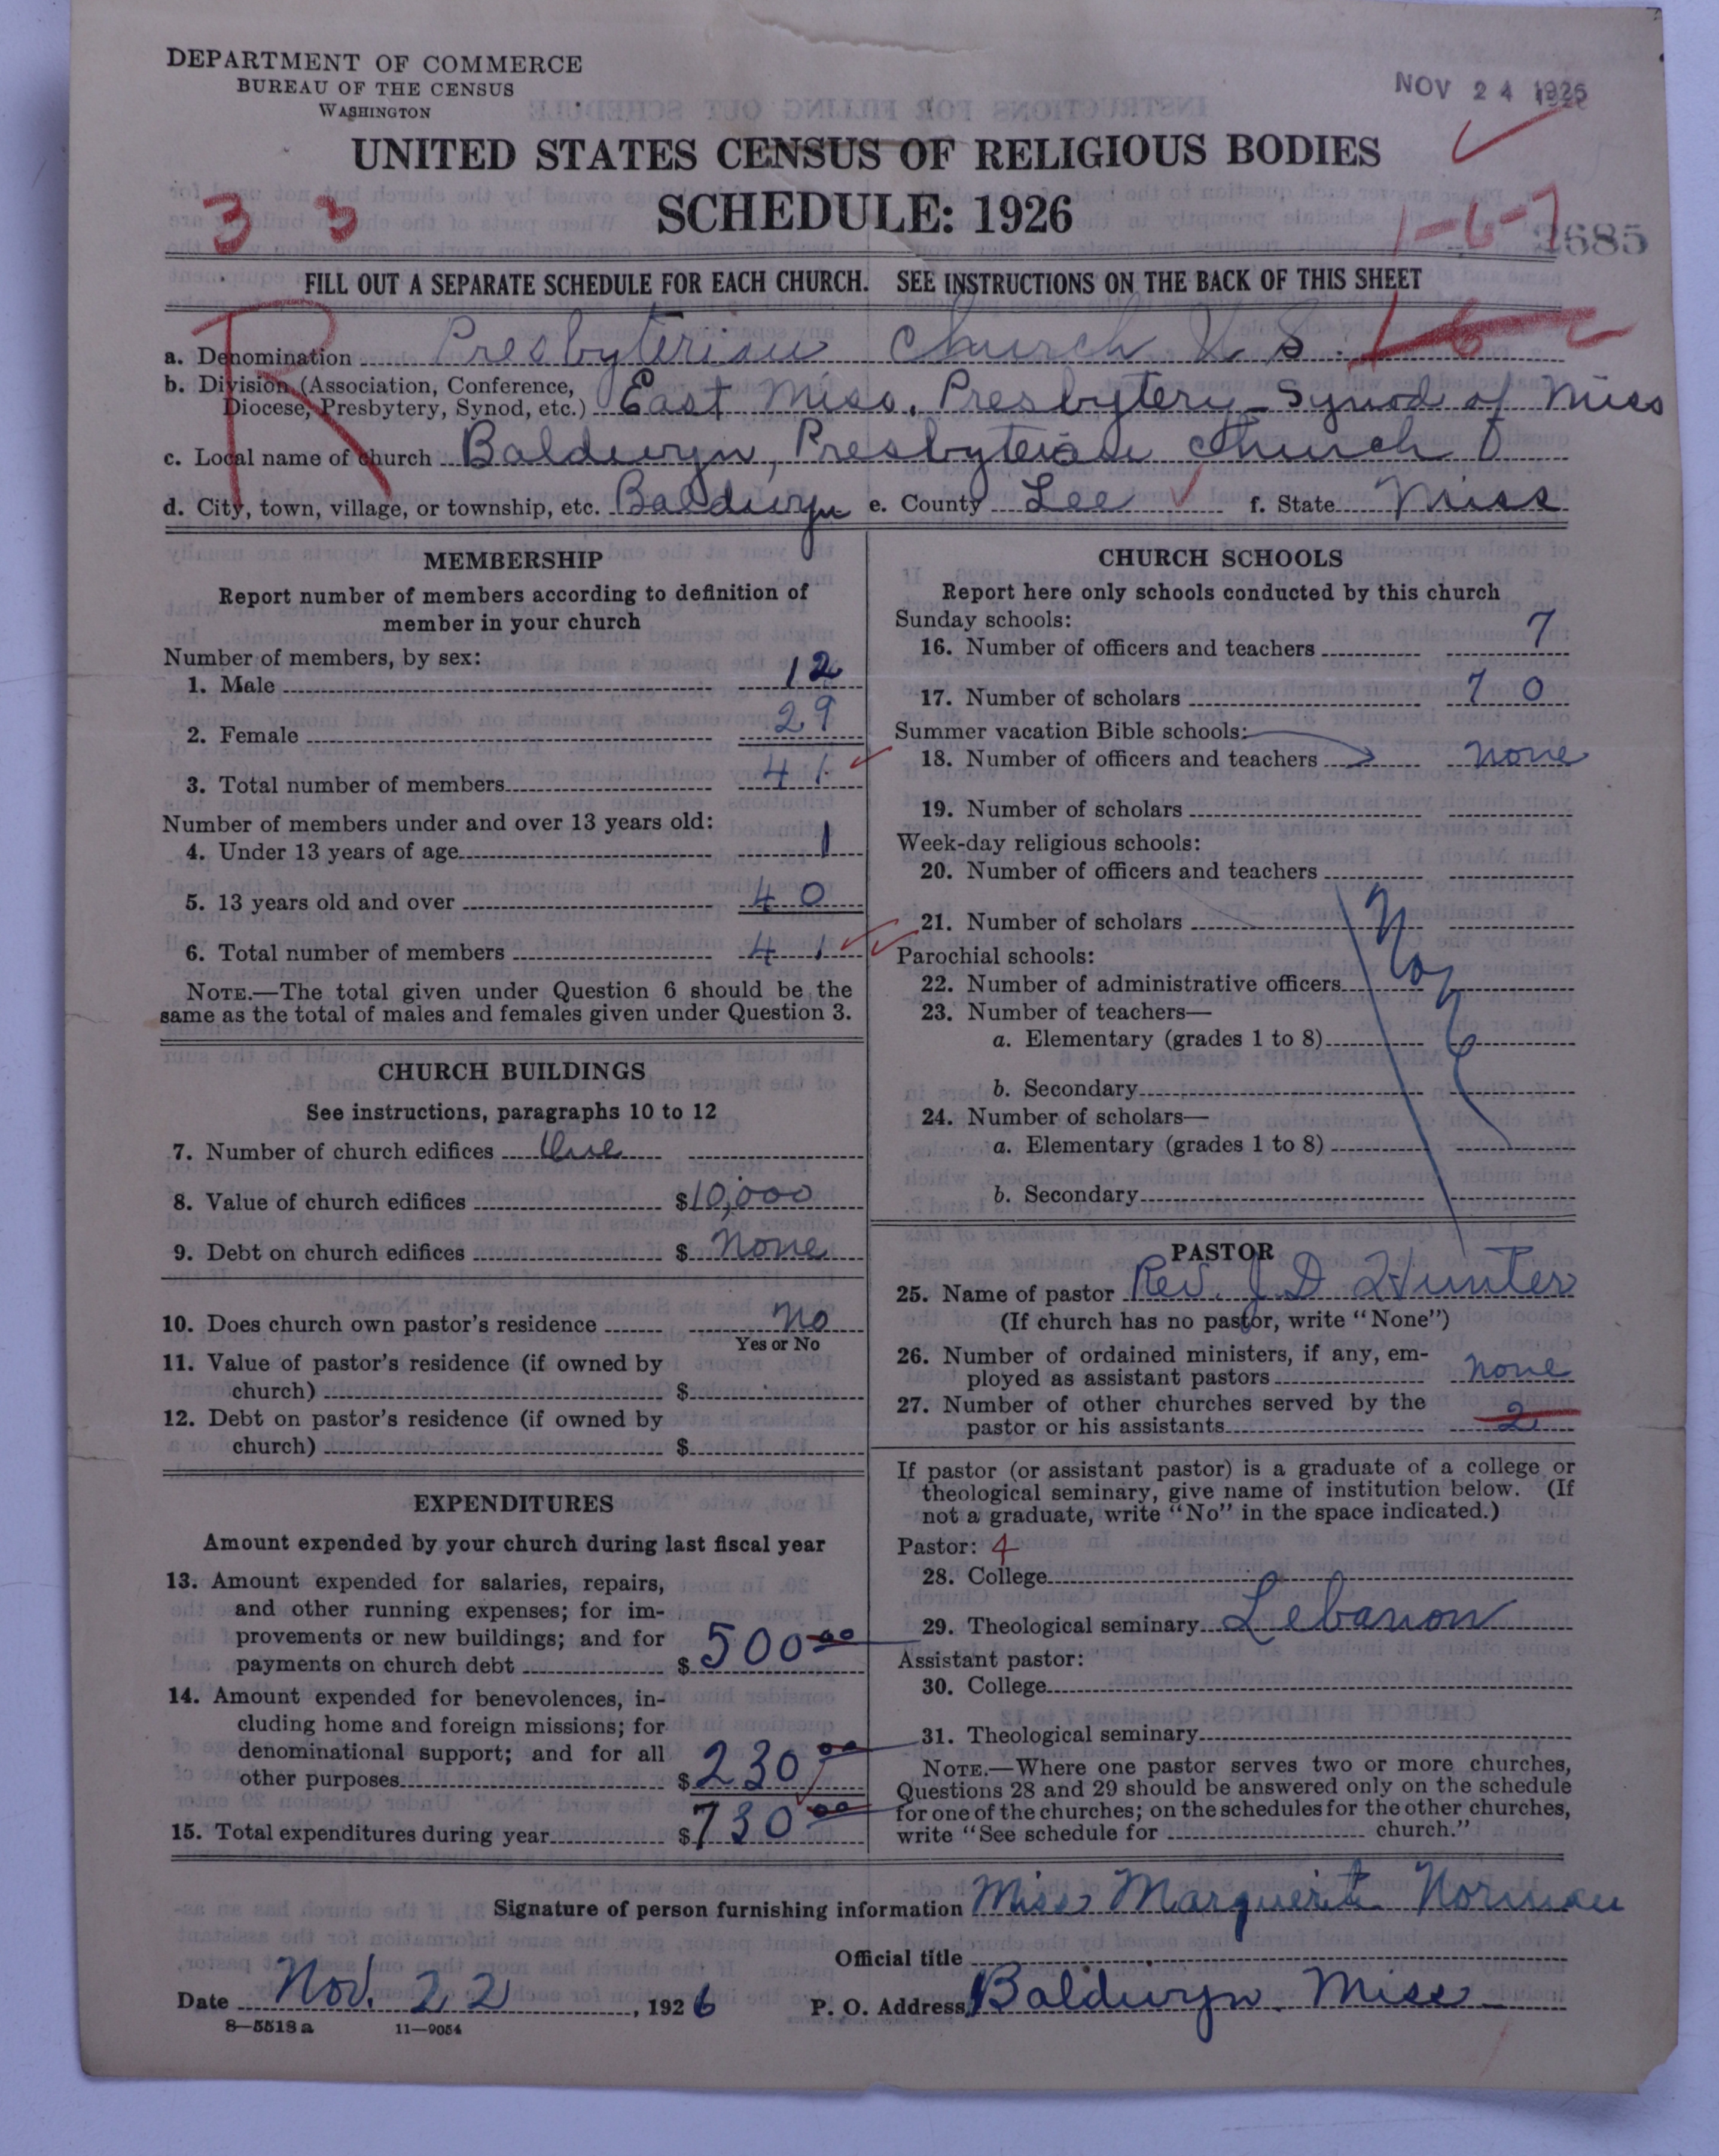 DEPARTMENT OF COMMERCE
BUREAU OF THE CENSUS
WASHINGTON
NOV 24 1926
UNITED STATES CENSUS OF RELIGIOUS BODIES
SCHEDULE: 1926
3 3
1-6-7
2685
FILL OUT A SEPARATE SCHEDULE FOR EACH CHURCH. SEE INSTRUCTIONS ON THE BACK OF THIS SHEET
R
a. Denomination Presbyterian Church U S.
b. Division (Association, Conference, Diocese, Presbytery, Synod, etc.) East Miss. Presbytery - Synod of Miss
c. Local name of church Baldwyn, Presbyterian Church
d. City, town, village, or township, etc. Baldwyn e. County Lee f. State Miss
MEMBERSHIP
Report number of members according to definition of
member in your church
Number of members, by sex:
1. Male 12
2. Female 29
3. Total number of members 41
Number of members under and over 13 years old:
4. Under 13 years of age 1
5. 13 years old and over 40
6. Total number of members 41
NOTE.—The total given under Question 6 should be the
same as the total of males and females given under Question 3.
CHURCH BUILDINGS
See instructions, paragraphs 10 to 12
7. Number of church edifices One
8. Value of church edifices $10,000
9. Debt on church edifices $ None
10. Does church own pastor's residence No
Yes or No
11. Value of pastor's residence (if owned by
church) $
12. Debt on pastor's residence (if owned by
church) $
EXPENDITURES
Amount expended by your church during last fiscal year
13. Amount expended for salaries, repairs,
and other running expenses; for im-
provements or new buildings; and for
payments on church debt $ 500 00
14. Amount expended for benevolences, in-
cluding home and foreign missions; for
denominational support; and for all
other purposes $ 230 00
15. Total expenditures during year $ 730 00
CHURCH SCHOOLS
Report here only schools conducted by this church
Sunday schools:
16. Number of officers and teachers 7
17. Number of scholars 70
Summer vacation Bible schools:
18. Number of officers and teachers none
19. Number of scholars
Week-day religious schools:
20. Number of officers and teachers
21. Number of scholars
Parochial schools:
22. Number of administrative officers
23. Number of teachers—
a. Elementary (grades 1 to 8)
b. Secondary
24. Number of scholars—
a. Elementary (grades 1 to 8)
b. Secondary
PASTOR
25. Name of pastor Rev. J. D Hunter
(If church has no pastor, write "None")
26. Number of ordained ministers, if any, em-
ployed as assistant pastors none
27. Number of other churches served by the
pastor or his assistants 2
If pastor (or assistant pastor) is a graduate of a college or
theological seminary, give name of institution below. (If
not a graduate, write "No" in the space indicated.)
Pastor: 4
28. College
29. Theological seminary Lebanon
Assistant pastor:
30. College
31. Theological seminary
NOTE.—Where one pastor serves two or more churches,
Questions 28 and 29 should be answered only on the schedule
for one of the churches; on the schedules for the other churches,
write "See schedule for church."
Signature of person furnishing information Miss Marguerite Norman
Official title
Date Nov. 22, 1926 P. O. Address Baldwyn Miss
8-5518a 11-9054